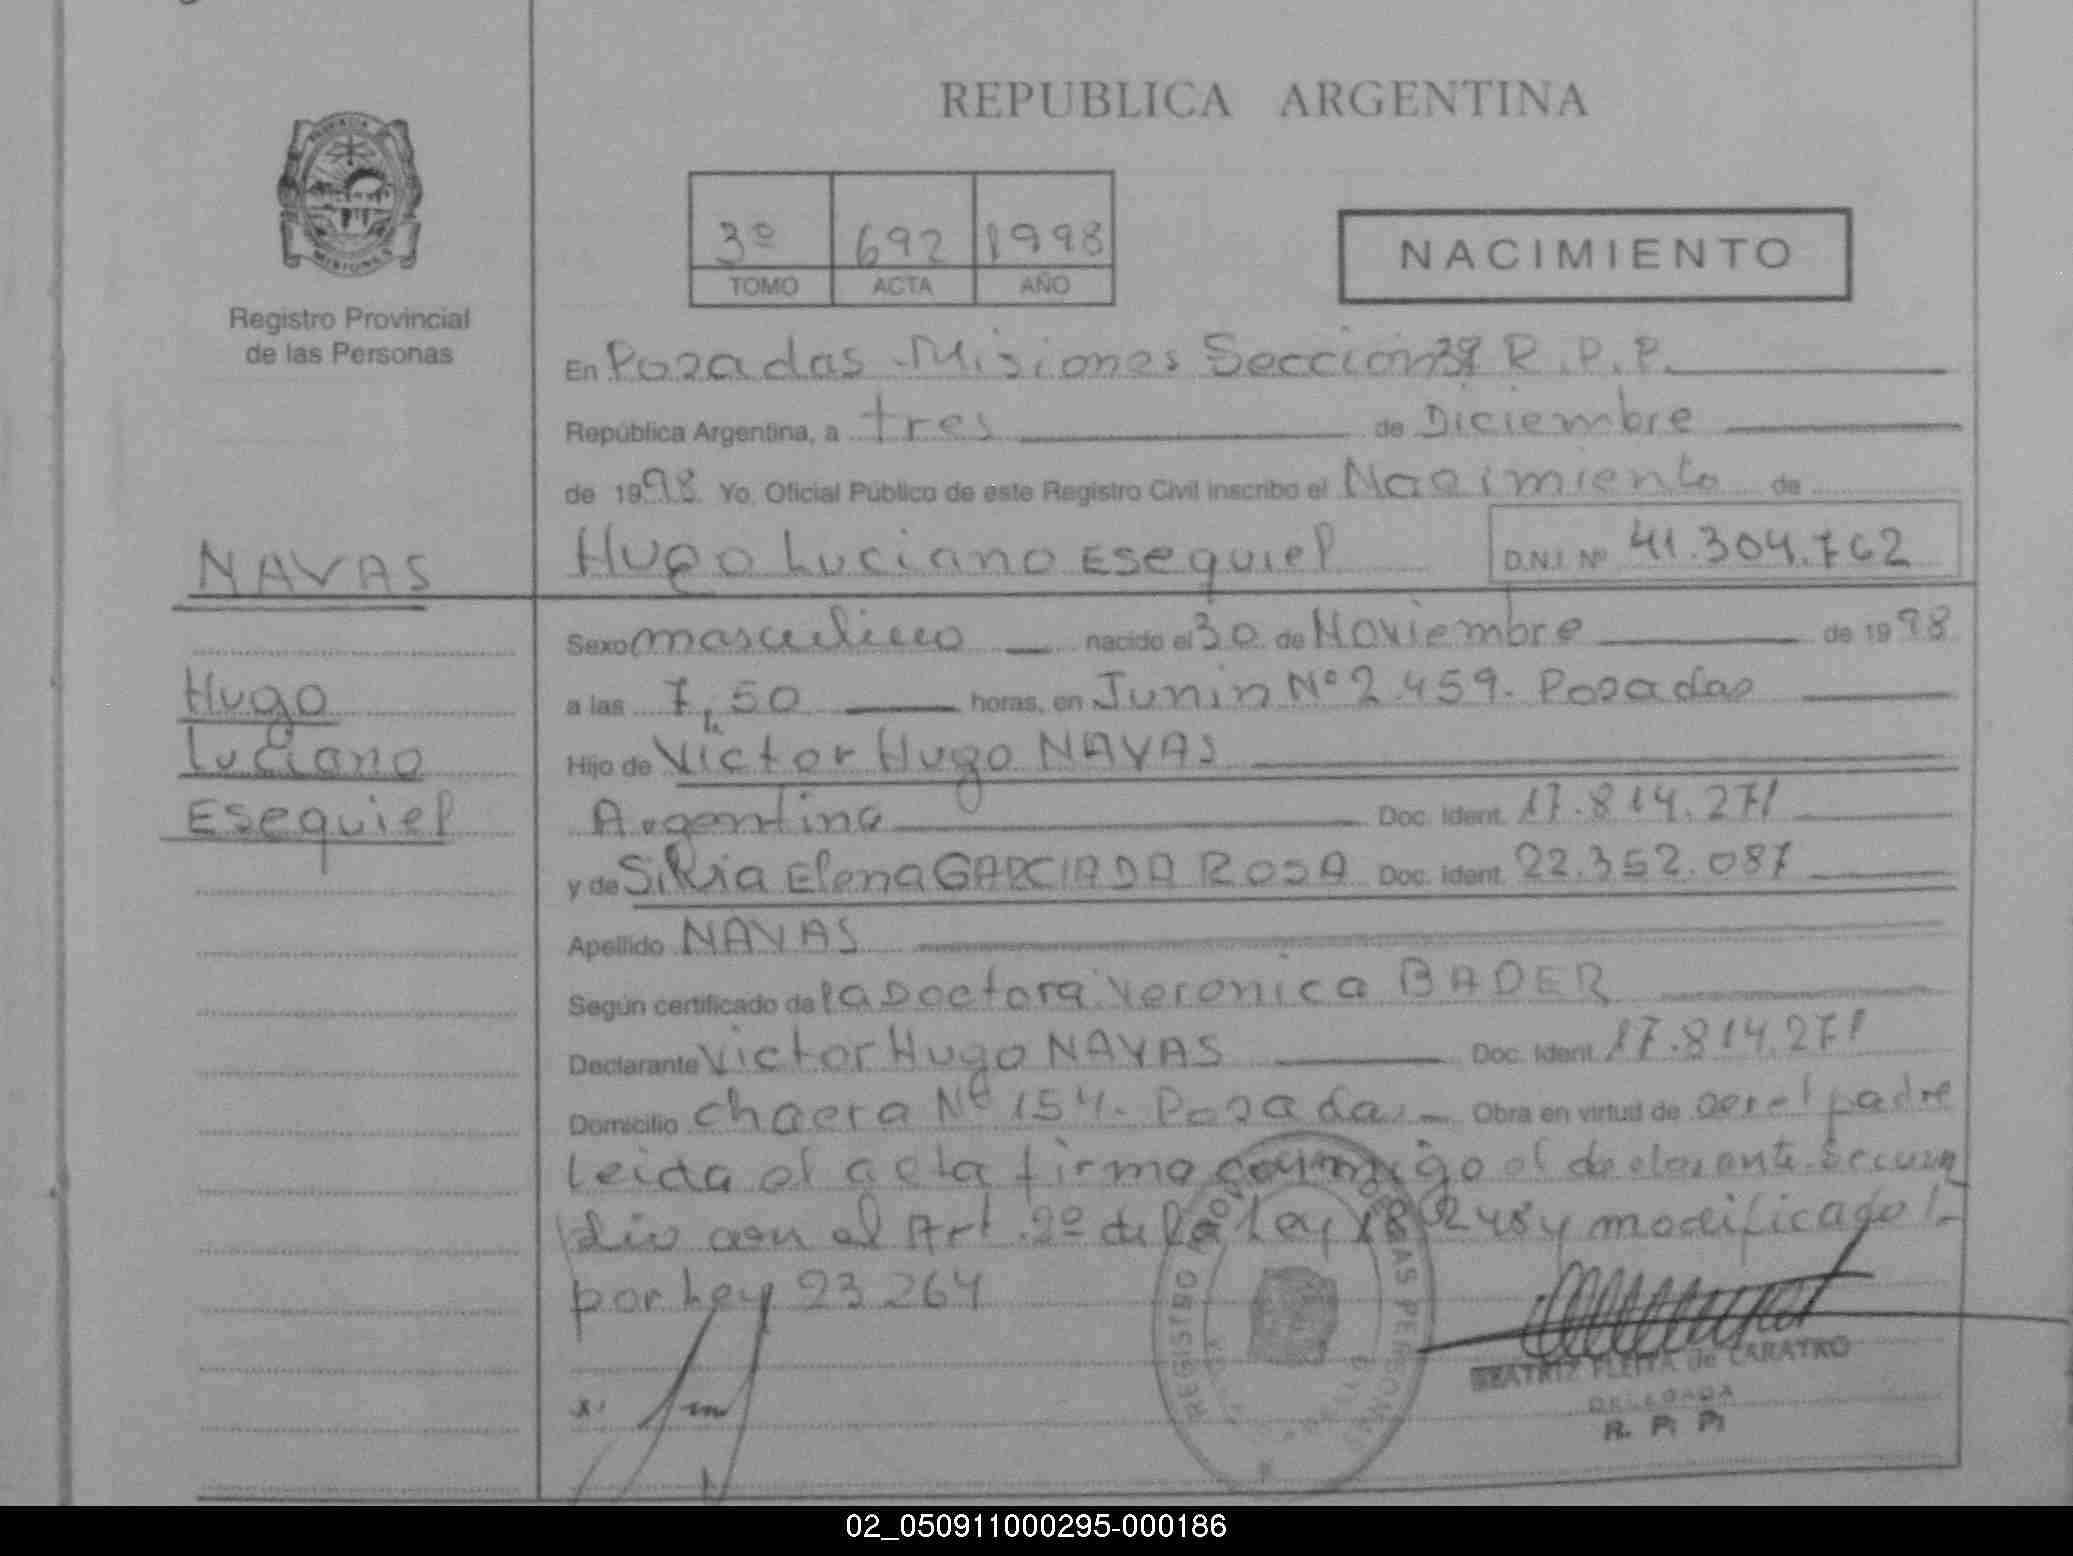 REPUBLICA ARGENTINA
3º 692 1998
TOMO ACTA AÑO
NACIMIENTO
PROVINCIA
MISIONES
Registro Provincial
de las Personas
En Posadas - Misiones Seccion 3ª R.P.P.
República Argentina, a tres de Diciembre
de 1998 Yo, Oficial Público de este Registro Civil inscribo el Nacimiento de
Hugo Luciano Esequiel D.N.I. Nº 41.304.762
NAVAS
Hugo
Luciano
Esequiel
Sexo masculino nacido el 30 de Noviembre de 1998
a las 7,50 horas, en Junin Nº 2.459. Posadas
Hijo de Victor Hugo NAVAS
Argentina Doc. Ident. 17.814.271
y de Silvia Elena GARCIA DA ROSA Doc. Ident. 22.352.087
Apellido NAVAS
Según certificado de la Doctora Veronica BADER
Declarante Victor Hugo NAVAS Doc. Ident. 17.814.271
Domicilio chacra Nº 154. Posadas - Obra en virtud de ser el padre
Leida el acta firma conmigo el declarante
con el Art. 2º de la Ley 18.248 y modificado
por Ley 23.264
REGISTRO PROVINCIAL DE LAS PERSONAS
BEATRIZ FLEITA de CARATRO
DELEGADA
R. P. P.
02_050911000295-000186